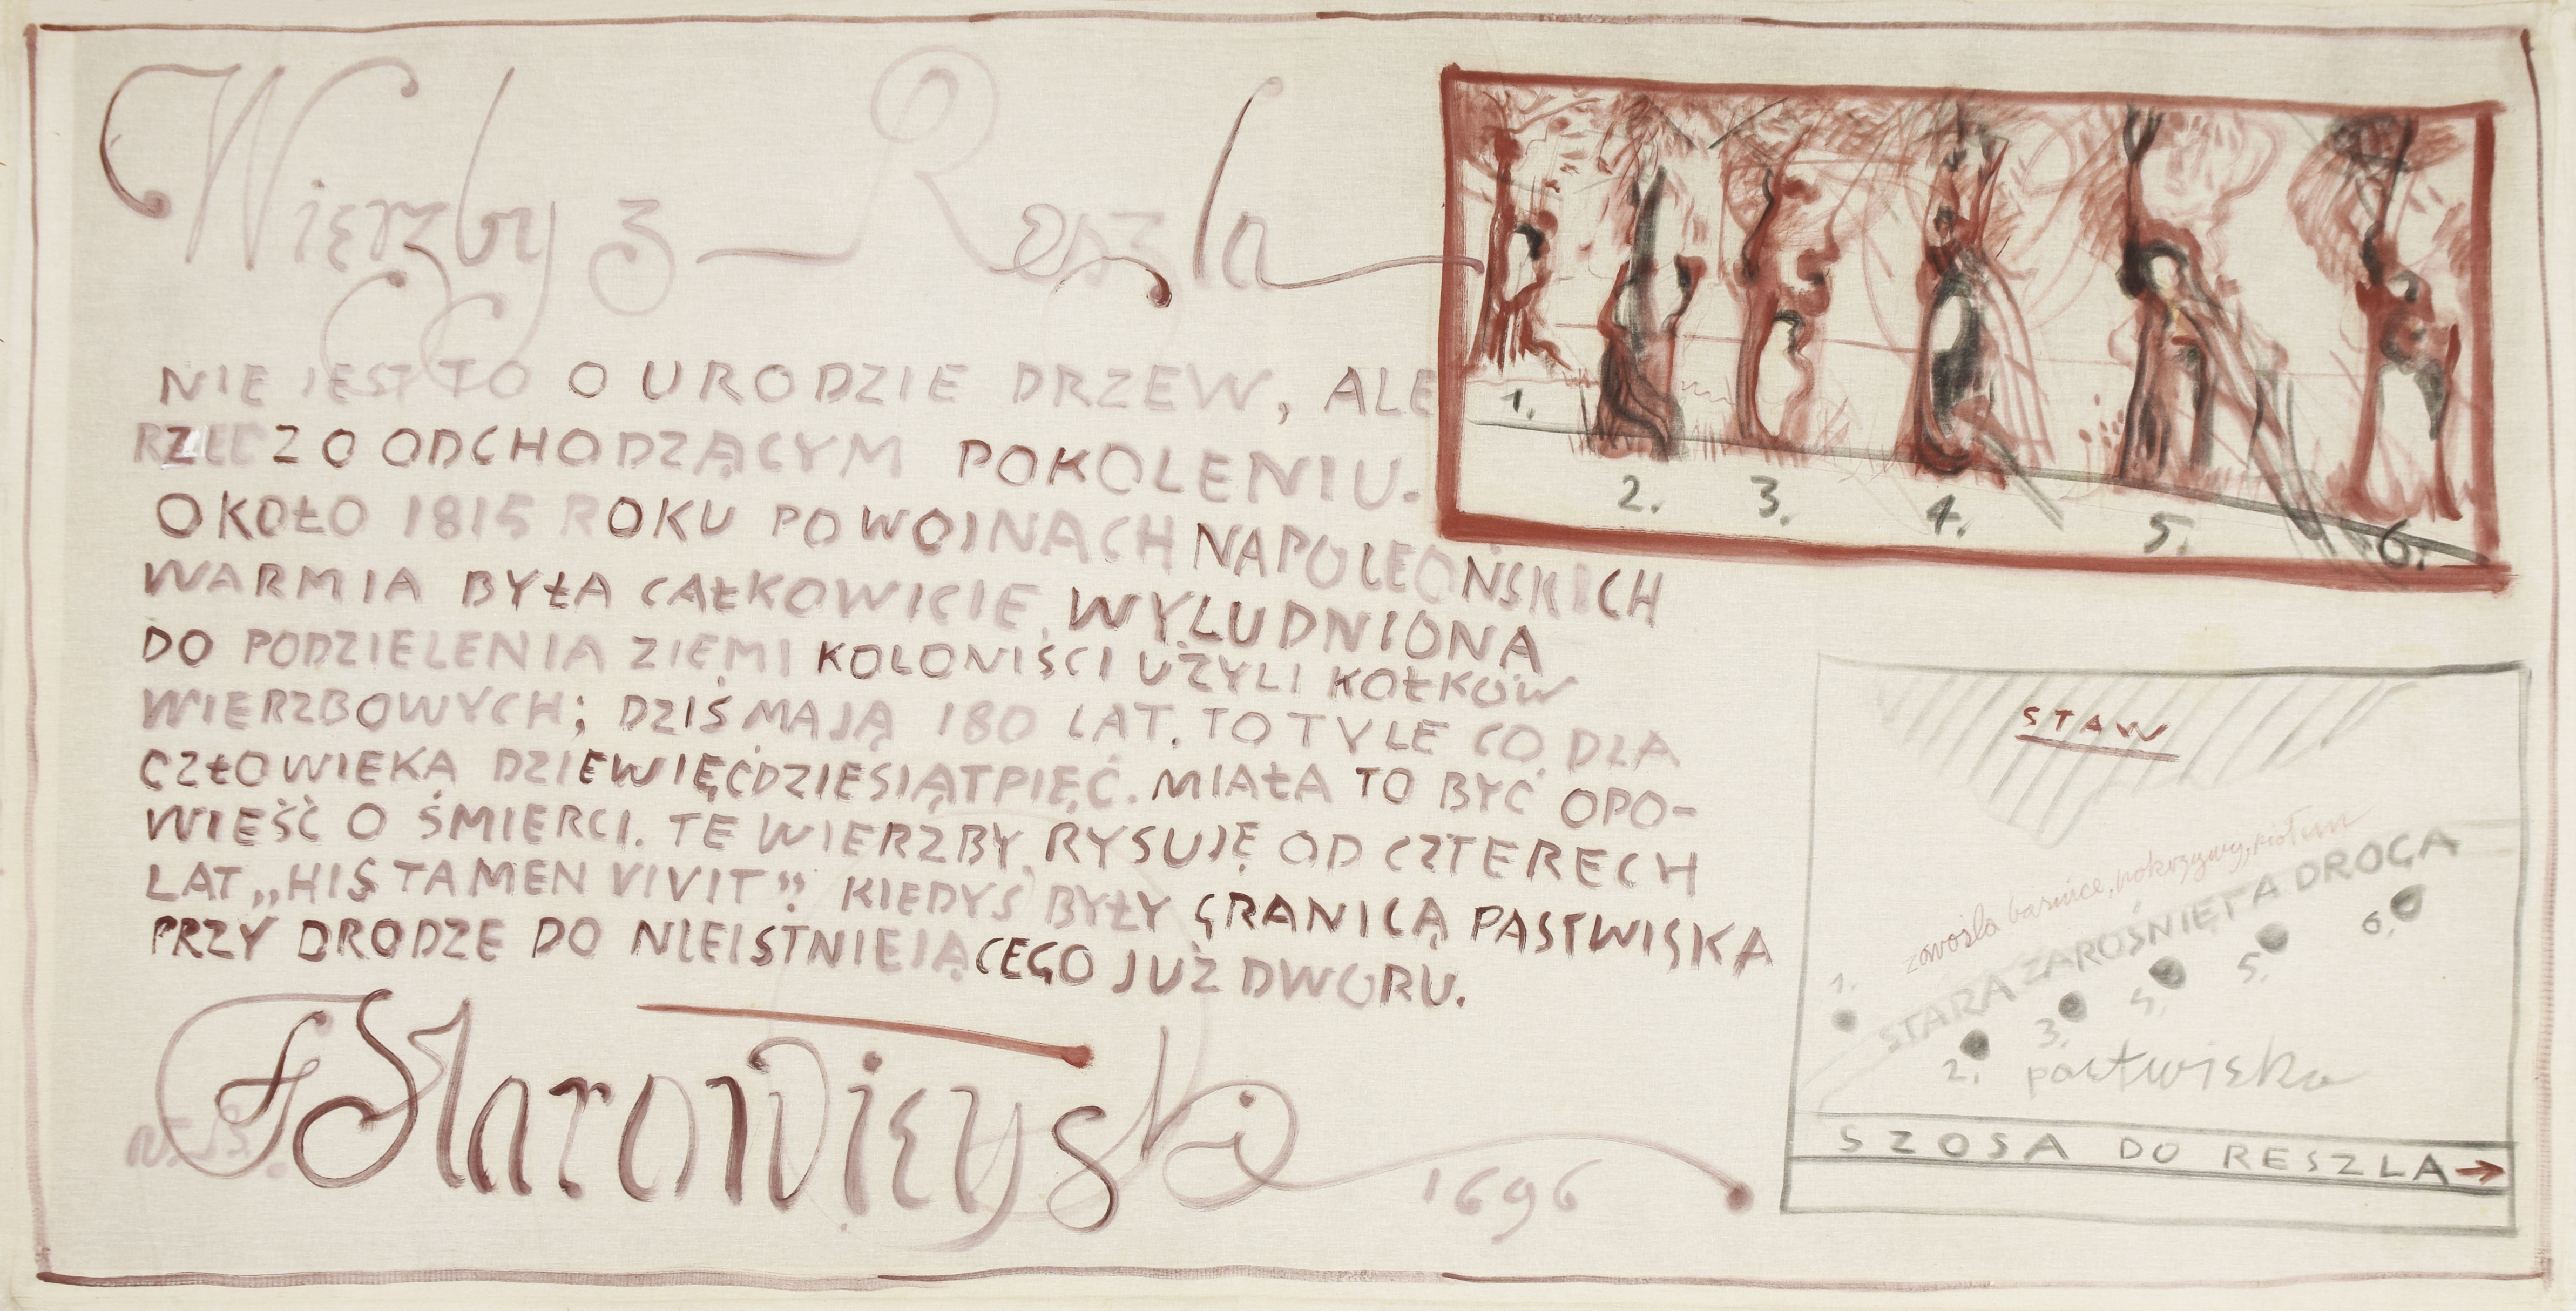 Wierzby z Reszla
NIE JEST TO O URODZIE DRZEW, ALE
RZECZ O ODCHODZĄCYM POKOLENIU.
OKOŁO 1815 ROKU PO WOJNACH NAPOLEOŃSKICH
WARMIA BYŁA CAŁKOWICIE WYLUDNIONA
DO PODZIELENIA ZIEMI KOLONIŚCI UŻYLI KOŁKÓW
WIERZBOWYCH; DZIŚ MAJĄ 180 LAT. TO TYLE CO DLA
CZŁOWIEKA DZIEWIĘĆDZIESIĄTPIĘĆ. MIAŁA TO BYĆ OPO-
WIEŚĆ O ŚMIERCI. TE WIERZBY RYSUJĘ OD CZTERECH
LAT „HIS TAMEN VIVIT” KIEDYŚ BYŁY GRANICĄ PASTWISKA
PRZY DRODZE DO NIEISTNIEJĄCEGO JUŻ DWORU.
F Starowieyski
1696
1.
2.
3.
4.
5.
6.
STAW
pokrzywy,
STARA ZAROŚNIĘTA DROGA
1.
2.
3.
4.
5.
6.
pastwisko
SZOSA DO RESZLA →